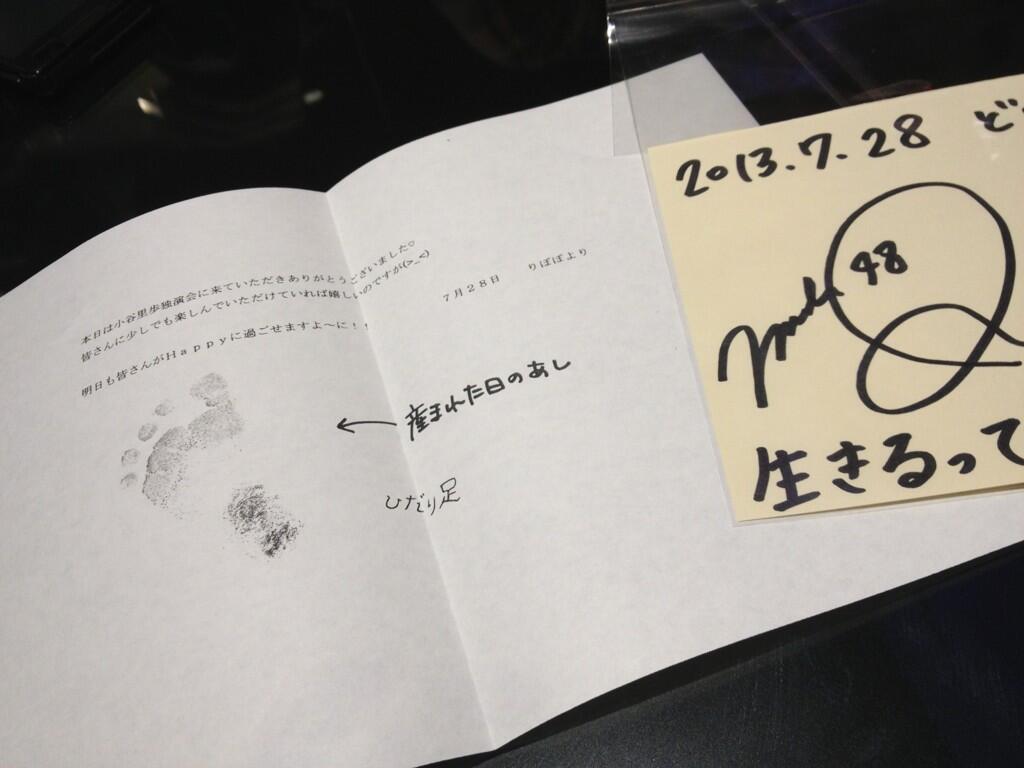 本日は小谷里歩独演会に来ていただきありがとうございました♡
皆さんに少しでも楽しんでいただけていれば嬉しいのですが(>_<)
明日も皆さんがHappyに過ごせますよ〜に！！
7月28日 りぽぽより
←産まれた日のあし
ひだり足
2013.7.28
48
生きるって